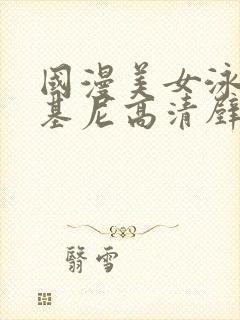 國漫美女泳
基尼高清壁
翳雪